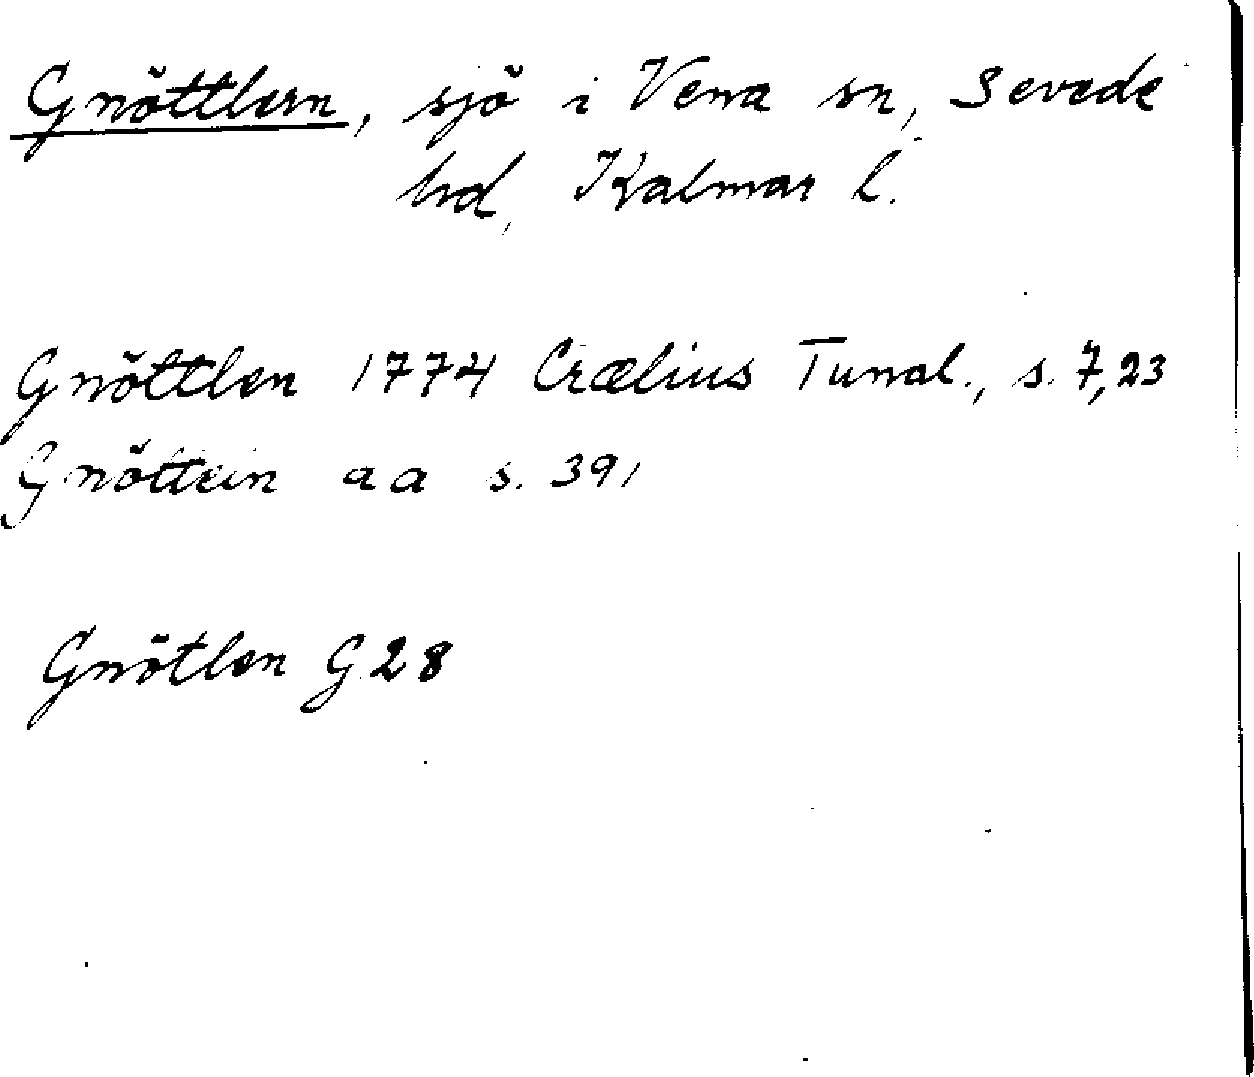 Gnöttlern, sjö i Vena sn, Sevede
hd, Kalmar l.
Gnöttlen 1774 Crælius Tunal., s. 7, 23
Gnöttein aa s. 391
Gnötlen G 28